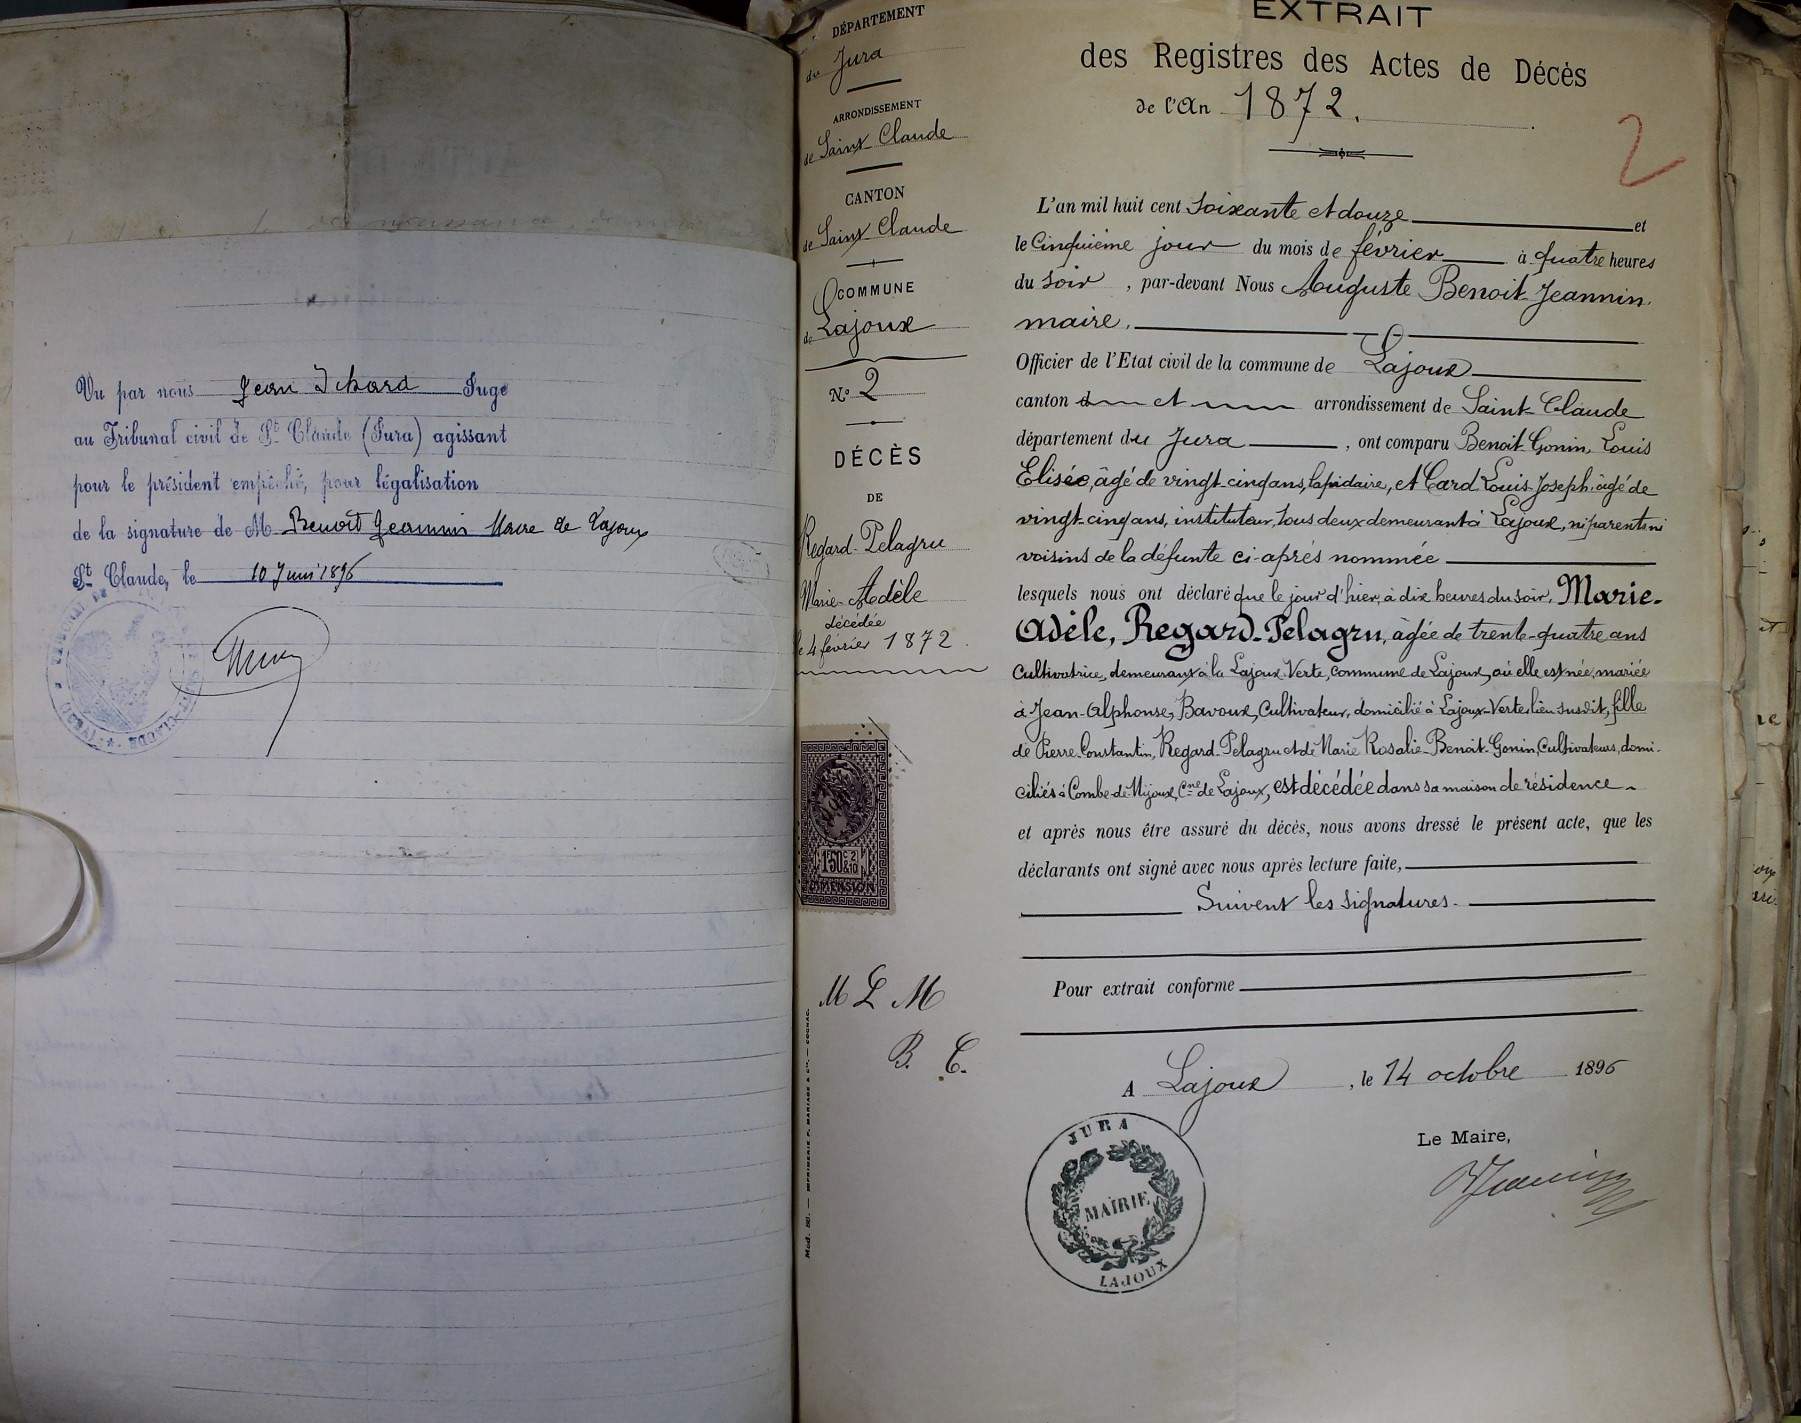 Vu par nous Jean Ichard Juge
au Tribunal civil de St Claude (Jura) agissant
pour le président empêché, pour légalisation
de la signature de M Benoit Jeannin Maire de Lajoux
St Claude, le 10 Juin 1896
DÉPARTEMENT
du Jura
ARRONDISSEMENT
de Saint Claude
CANTON
de Saint Claude
COMMUNE
de Lajoux
N° 2
DÉCÈS
DE
Regard-Pelagru
Marie-Adèle
décédée
le 4 février 1872.
1F50c 2/10
DIMENSION
M L M
B. C.
EXTRAIT
des Registres des Actes de Décès
de l'An 1872.
2
L'an mil huit cent soixante et douze et
le Cinquième jour du mois de février à quatre heures
du soir, par-devant Nous Auguste Benoit Jeannin
maire.
Officier de l'Etat civil de la commune de Lajoux
canton et arrondissement de Saint-Claude
département du Jura, ont comparu Benoit-Gonin, Louis
Elisée, âgé de vingt-cinq ans, lapidaire, et Card Louis-Joseph, âgé de
vingt-cinq ans, instituteur, tous deux demeurant à Lajoux, ni parents ni
voisins de la défunte ci-après nommée
lesquels nous ont déclaré que le jour d'hier, à dix heures du soir, Marie-
Adèle, Regard-Pelagru, âgée de trente-quatre ans
Cultivatrice, demeurant à la Lajoux-Verte, commune de Lajoux, où elle est née, mariée
à Jean-Alphonse, Bavoux, Cultivateur, domicilié à Lajoux-Verte, lieu susdit, fille
de Pierre Constantin, Regard-Pelagru et de Marie Rosalie-Benoit-Gonin, Cultivateurs, domi-
ciliés à Combe-de-Mijoux, Cne de Lajoux, est décédée dans sa maison de résidence
et après nous être assuré du décès, nous avons dressé le présent acte, que les
déclarants ont signé avec nous après lecture faite,
Suivent les signatures.
Pour extrait conforme
A Lajoux, le 14 octobre 1896
Le Maire,
JURA
MAIRIE
LAJOUX